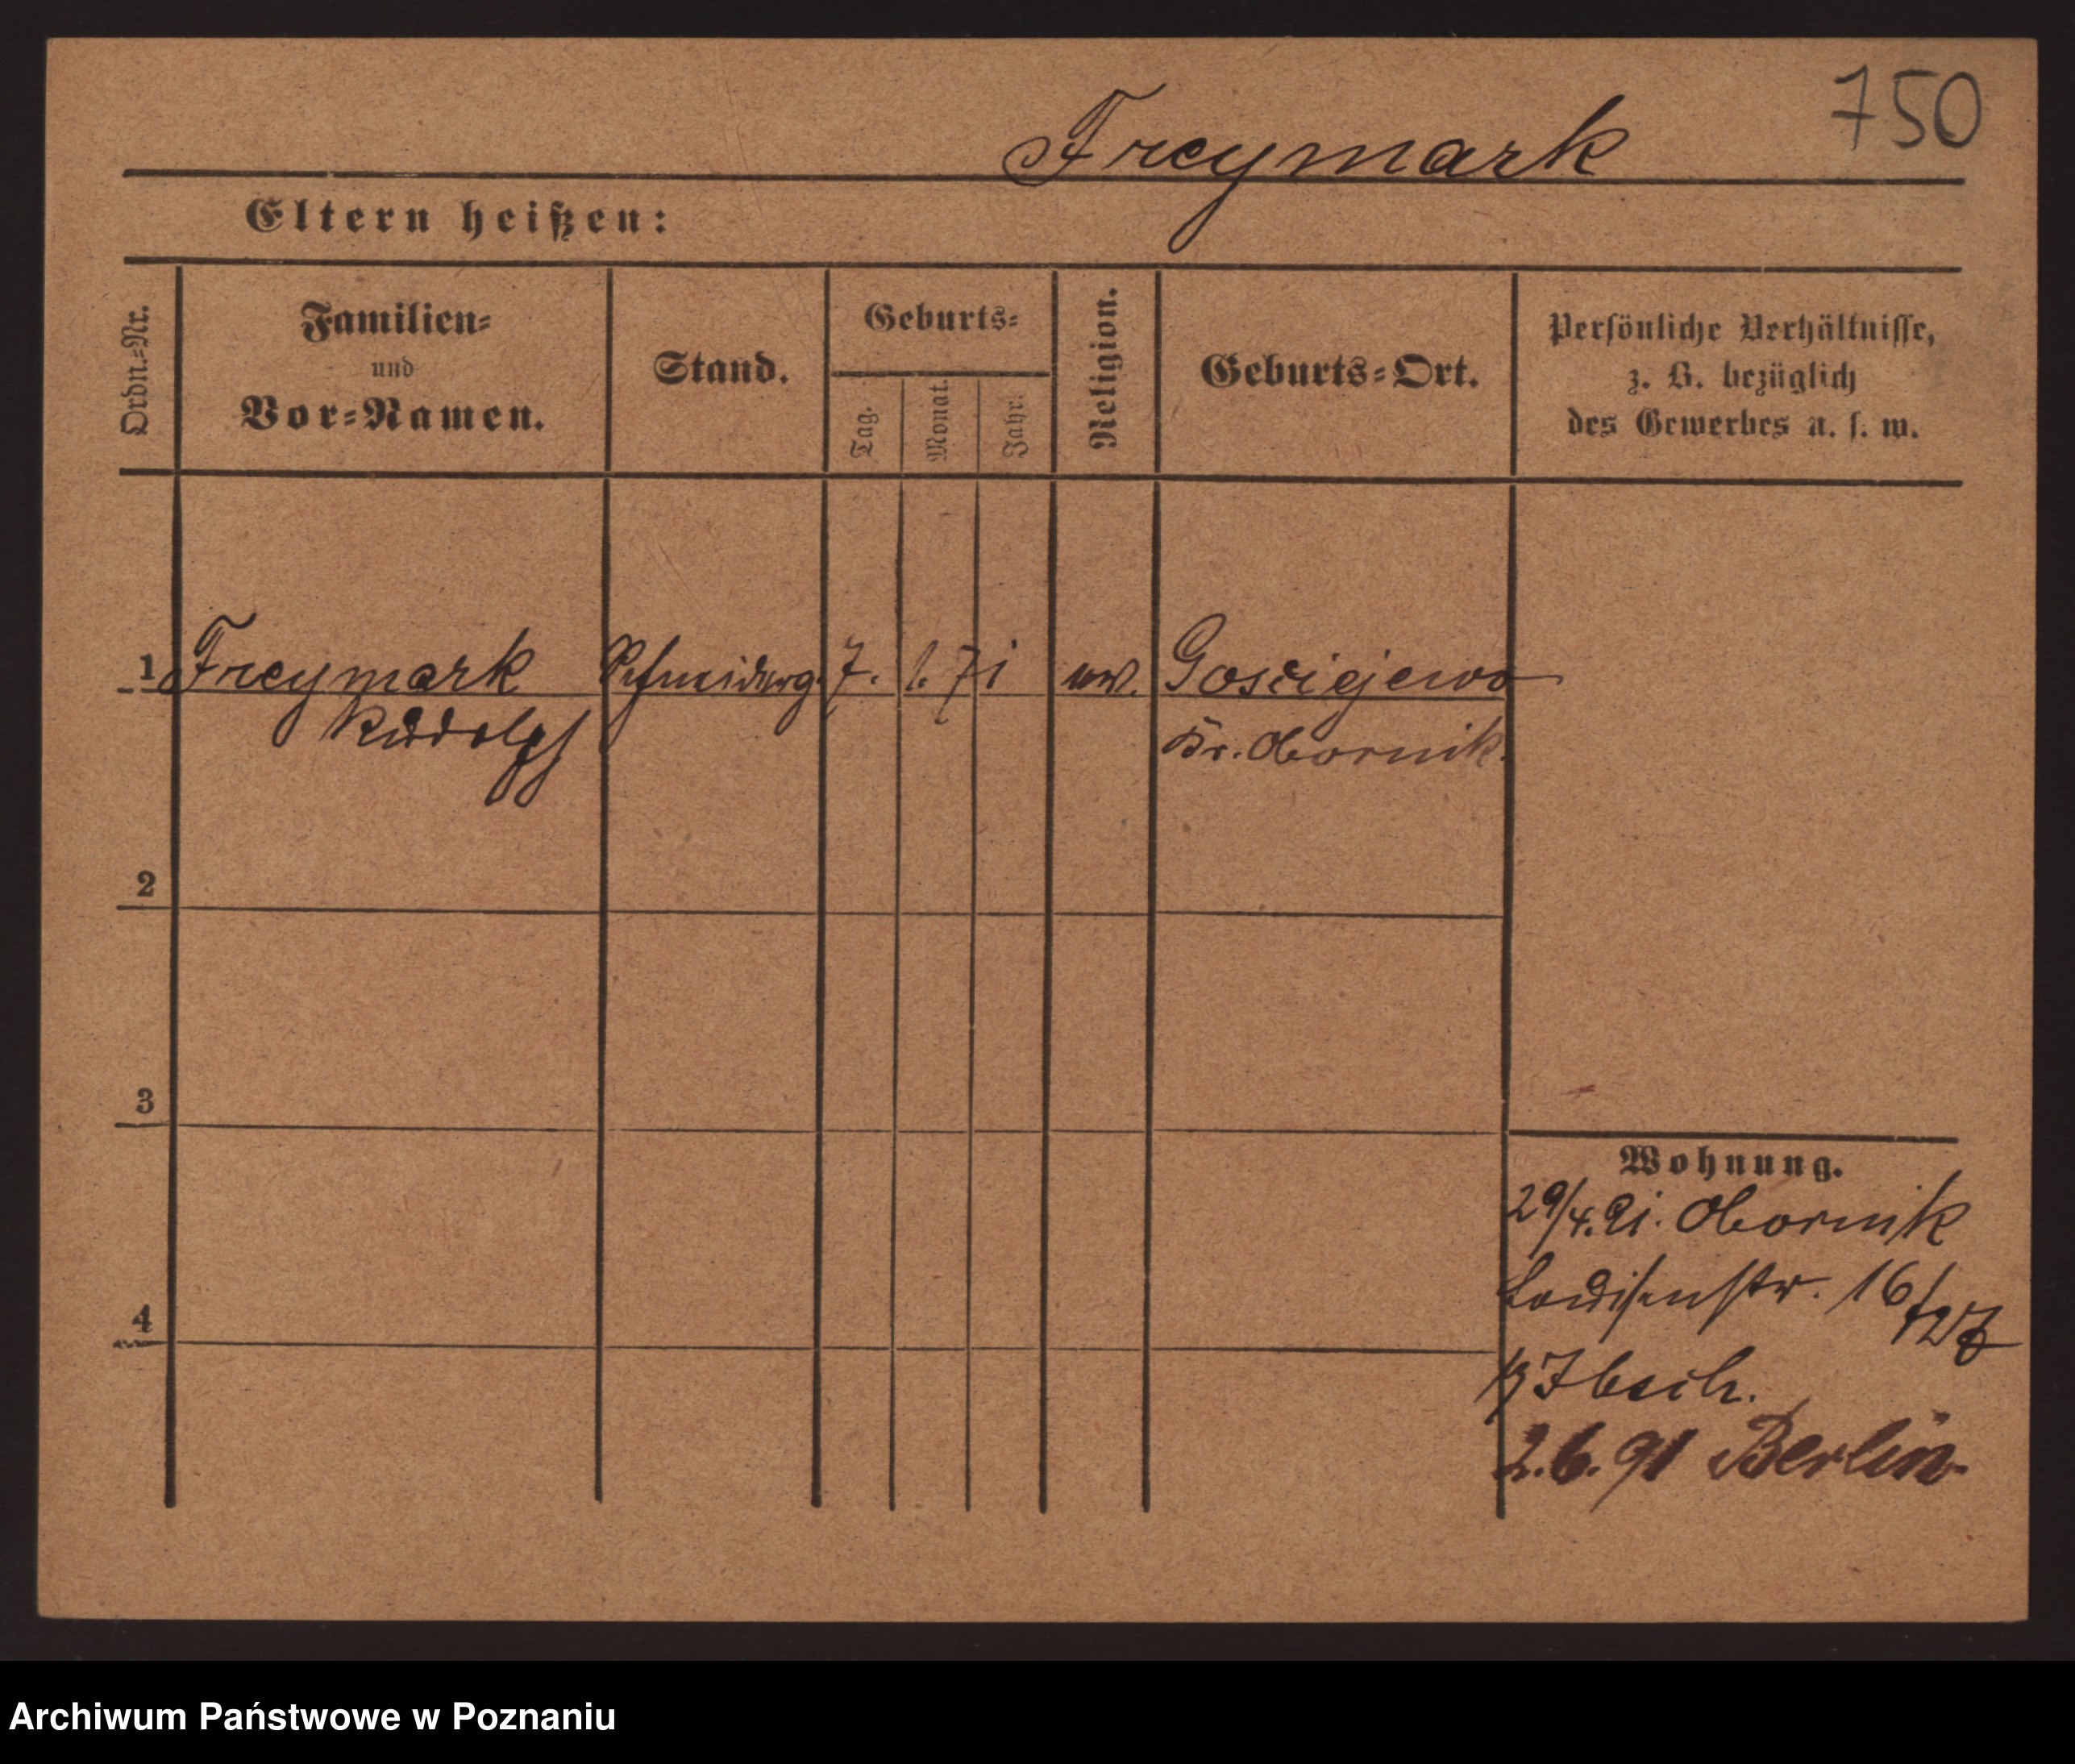 750
Freymark
Eltern heißen:
Ordn.=Nr.
Familien=
und
Vor=Namen.
Stand.
Geburts=
Tag.
Monat.
Jahr.
Religion.
Geburts=Ort.
Persönliche Verhältnisse,
z. B. bezüglich
des Gewerbes u. s. w.
1 Freymark Schneiderg. 7. 1. 71 ev. Gosciejewo
Rudolph Kr. Obornik.
2
3
4
Wohnung.
29/4.91. Obornik
Louisenstr. 16/
2.6.91 Berlin.
Archiwum Państwowe w Poznaniu